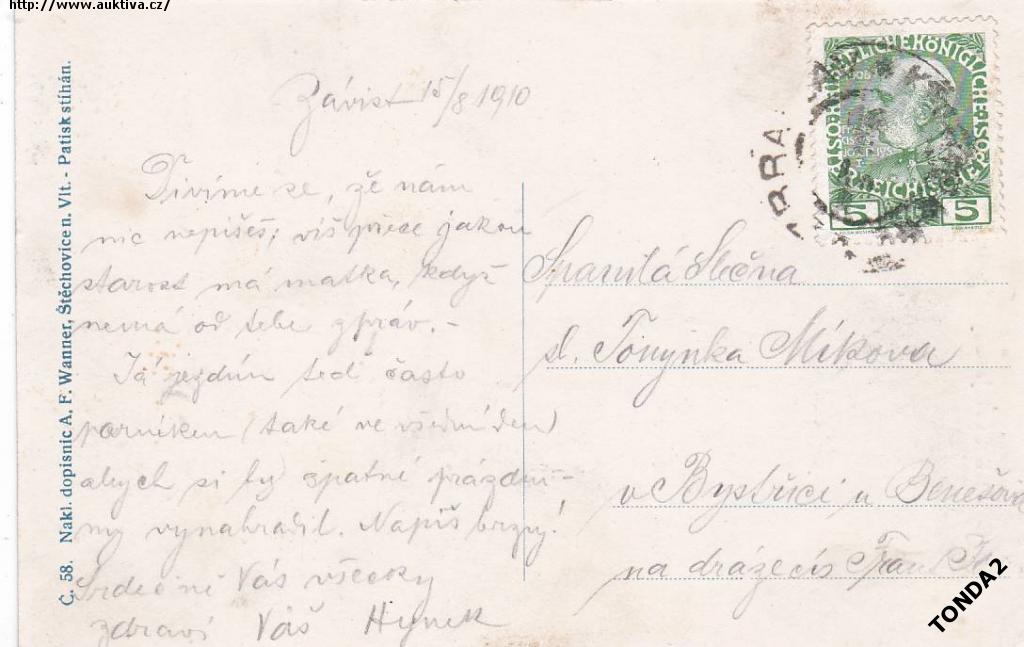 http://www.auktiva.cz/
Č. 58. Nakl. dopisnic A. F. Wanner, Štěchovice n. Vlt. - Patisk stíhán.
Závist 15/8 1910
Divíme se, že nám
nic nepíšeš; víš přece jakou
starost má matka, když
nemá od tebe zpráv. -
Já jezdím teď často
parníkem (také ve všední den)
abych si ty špatné prázdni-
ny vynahradil. Napiš brzy!
Srdečně Vás všecky
zdraví Váš Hynek
KAISERLICHE KÖNIGLICHE ÖSTERREICHISCHE POST
5 5
Spanilá Slečna
sl. Tonynka Míkova
v Bystřici u Benešova
na dráze cís Frant
TONDA2